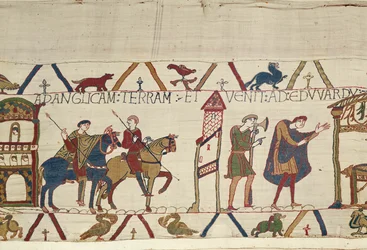 AD ANGLICAM : TERRAM : ET VENIT : AD : EDVVARDV